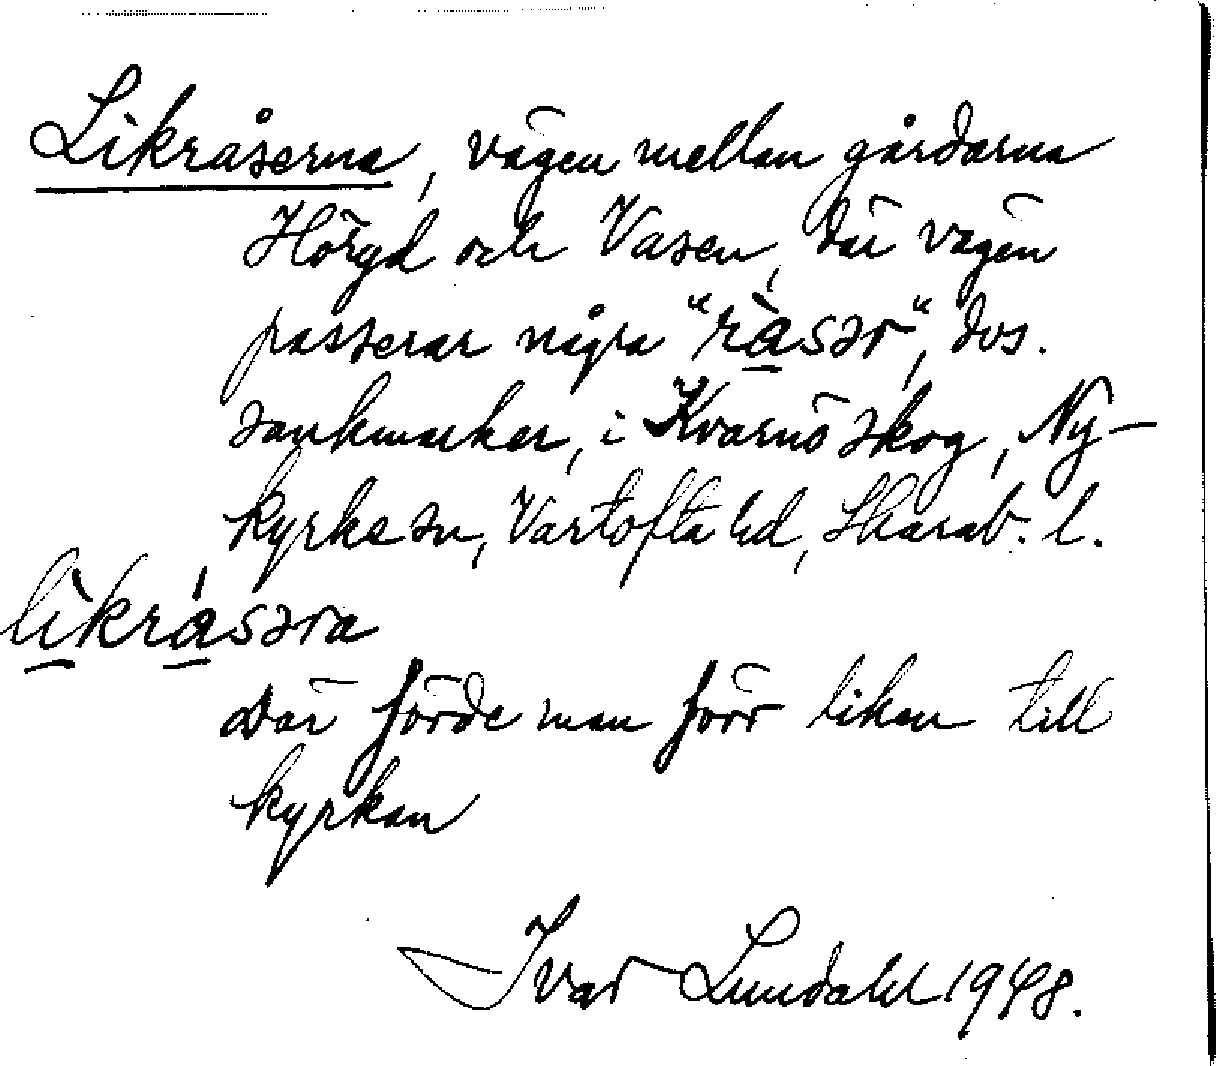 Likråserna, vägen mellan gårdarna
Höryd och Vasen, där vägen
passerar några "rȧsər", dvs.
sankmarker, i Kvarnö skog, Ny-
kyrke sn, Vartofta hd, Skarab. l.
likrasəra
Där förde man förr liken till
kyrkan
Ivar Lundahl 1948.